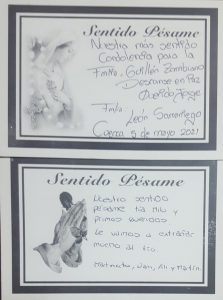 Sentido Pésame
Nuestra más sentido
Condolencia para la
Fmlia. Guillén Zambrano
Descanse en Paz
Querido Jorge
Fmlia
León Samaniego
Cuenca 5 de mayo 2021
Sentido Pésame
Nuestro sentido
pésame tía Miu y
primos queridos
Le vamos a extrañar
mucho al tío.
Juan, y Martín.